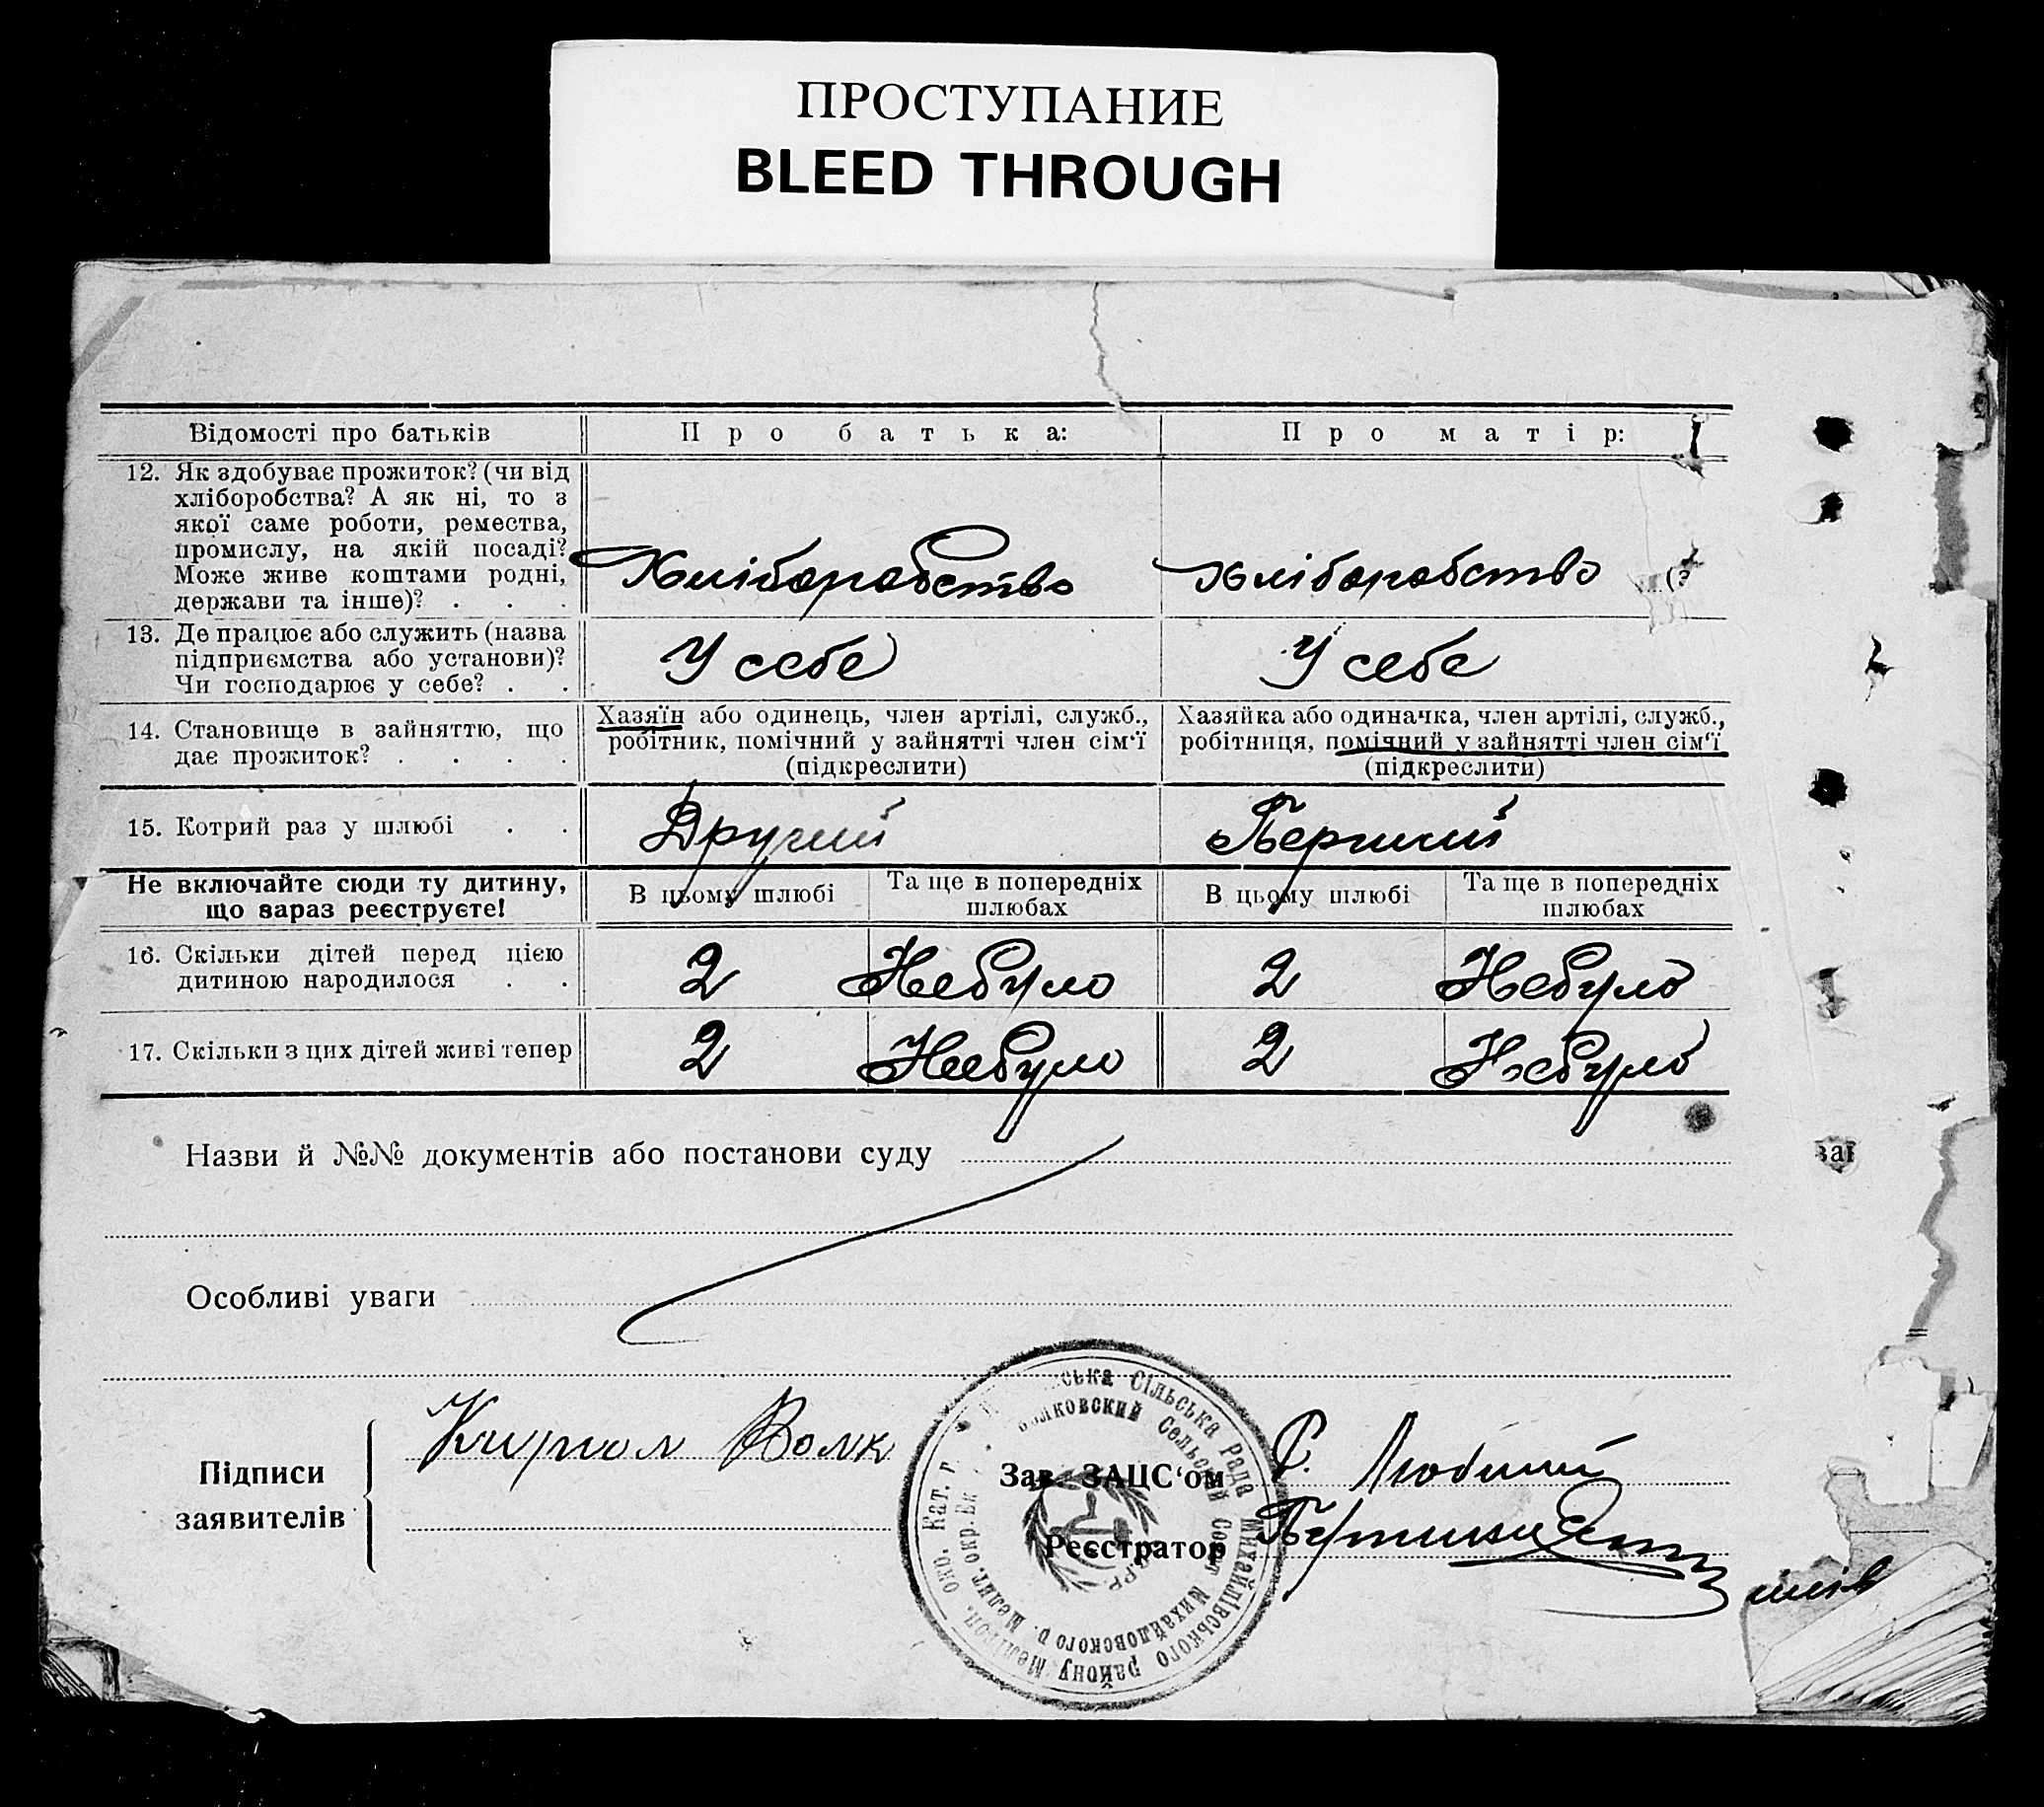 ПРОСТУПАНИЕ
BLEED THROUGH
Відомості про батьків
Про батька:
Про матір:
12. Як здобуває прожиток? (чи від
хліборобства? А як ні, то з
якої саме роботи, ремества,
промислу, на якій посаді?
Може живе коштами родні,
держави та інше)? . . .
Хліборобство
Хліборобство
13. Де працює або служить (назва
підприємства або установи)?
Чи господарює у себе? . .
У себе
У себе
14. Становище в зайняттю, що
дає прожиток? . . . .
Хазяїн або одинець, член артілі, служб.,
робітник, помічний у зайнятті член сім'ї
(підкреслити)
Хазяйка або одиначка, член артілі, служб.,
робітниця, помічний у зайнятті член сім'ї
(підкреслити)
15. Котрий раз у шлюбі . .
Другий
Перший
Не включайте сюди ту дитину,
що зараз реєструєте!
В цьому шлюбі
Та ще в попередніх
шлюбах
В цьому шлюбі
Та ще в попередніх
шлюбах
16. Скільки дітей перед цією
дитиною народилося . .
2
Небуло
2
Небуло
17. Скільки з цих дітей живі тепер
2
Небуло
2
Небуло
Назви й №№ документів або постанови суду
Особливі уваги
Підписи
заявителів
Кирил Волк
Зав. ЗАЦС'ом
Реєстратор
Любимий
ська Сільська Рада Михайлівського району Мелітоп. окр. Кат. г.
Сельский Совет Михайловского р. Мелит. окр. Ек